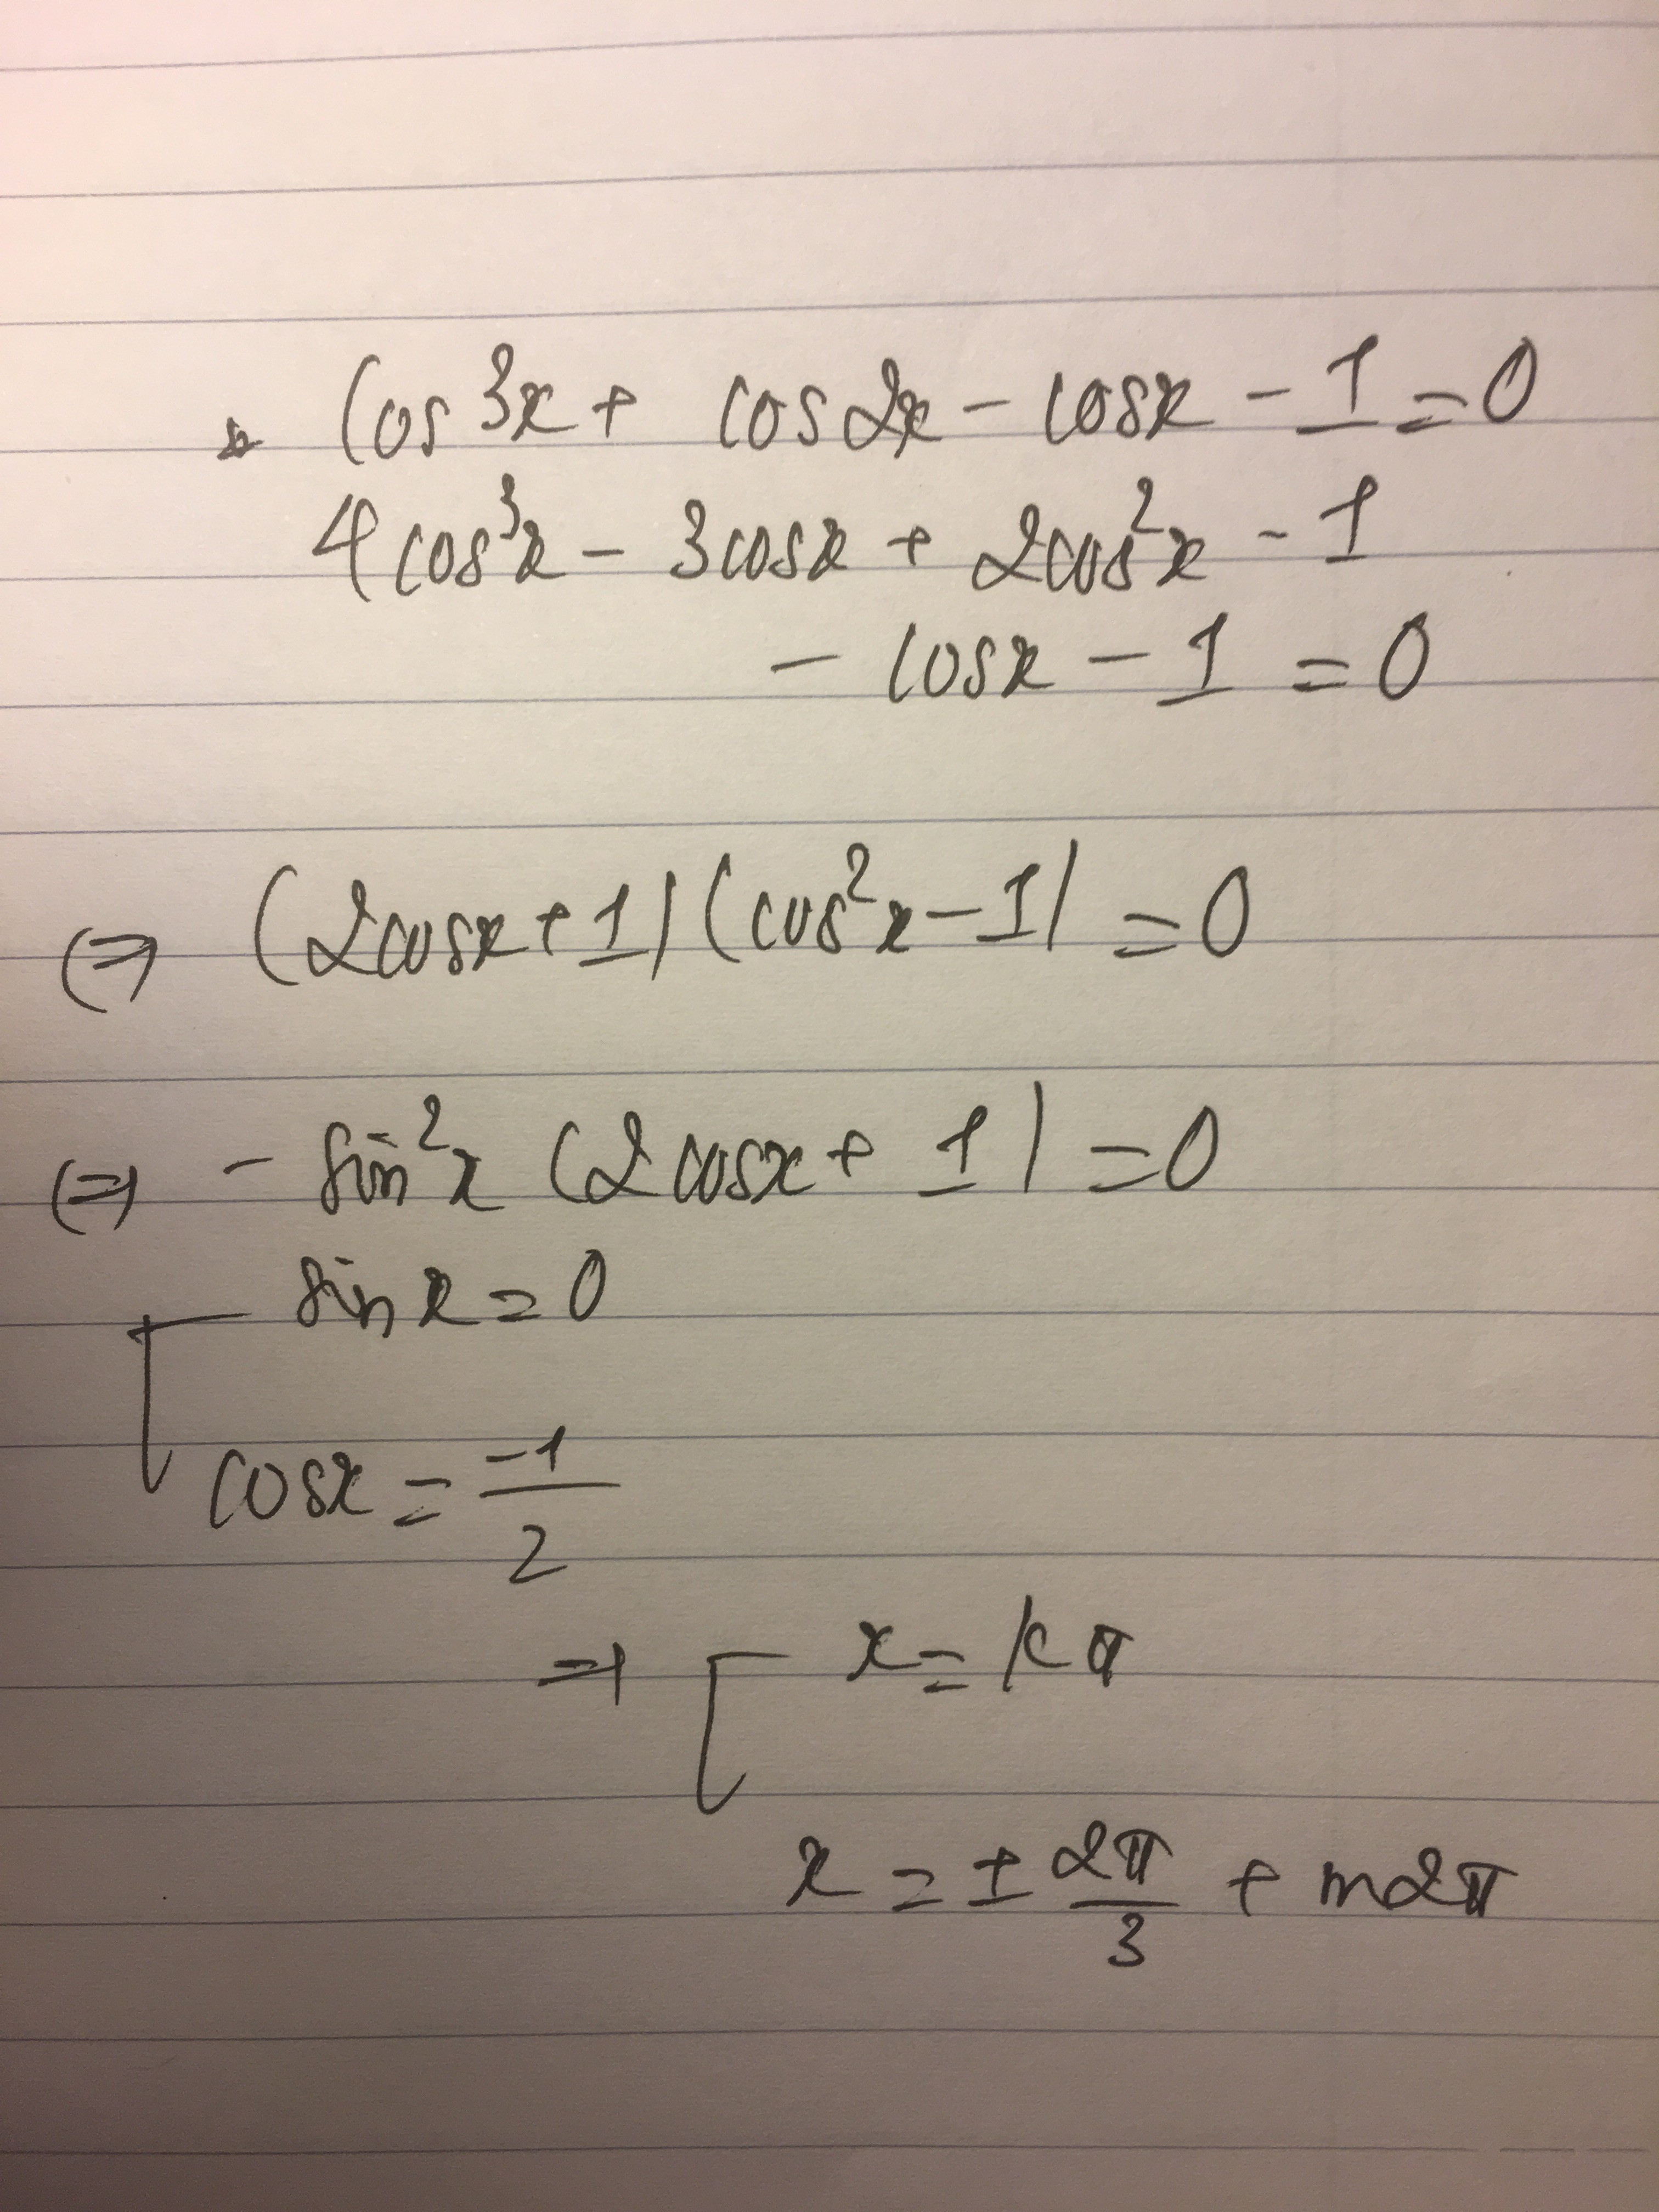 cos3x + cos2x - cosx - 1 = 0
4cos³x - 3cosx + 2cos²x - 1
- cosx - 1 = 0
(=) (2cosx + 1) (cos²x - 1) = 0
(=) - sin²x (2cosx + 1) = 0
sinx = 0
cosx = -1/2
=) x = kπ
x = ± 2π/3 + m2π